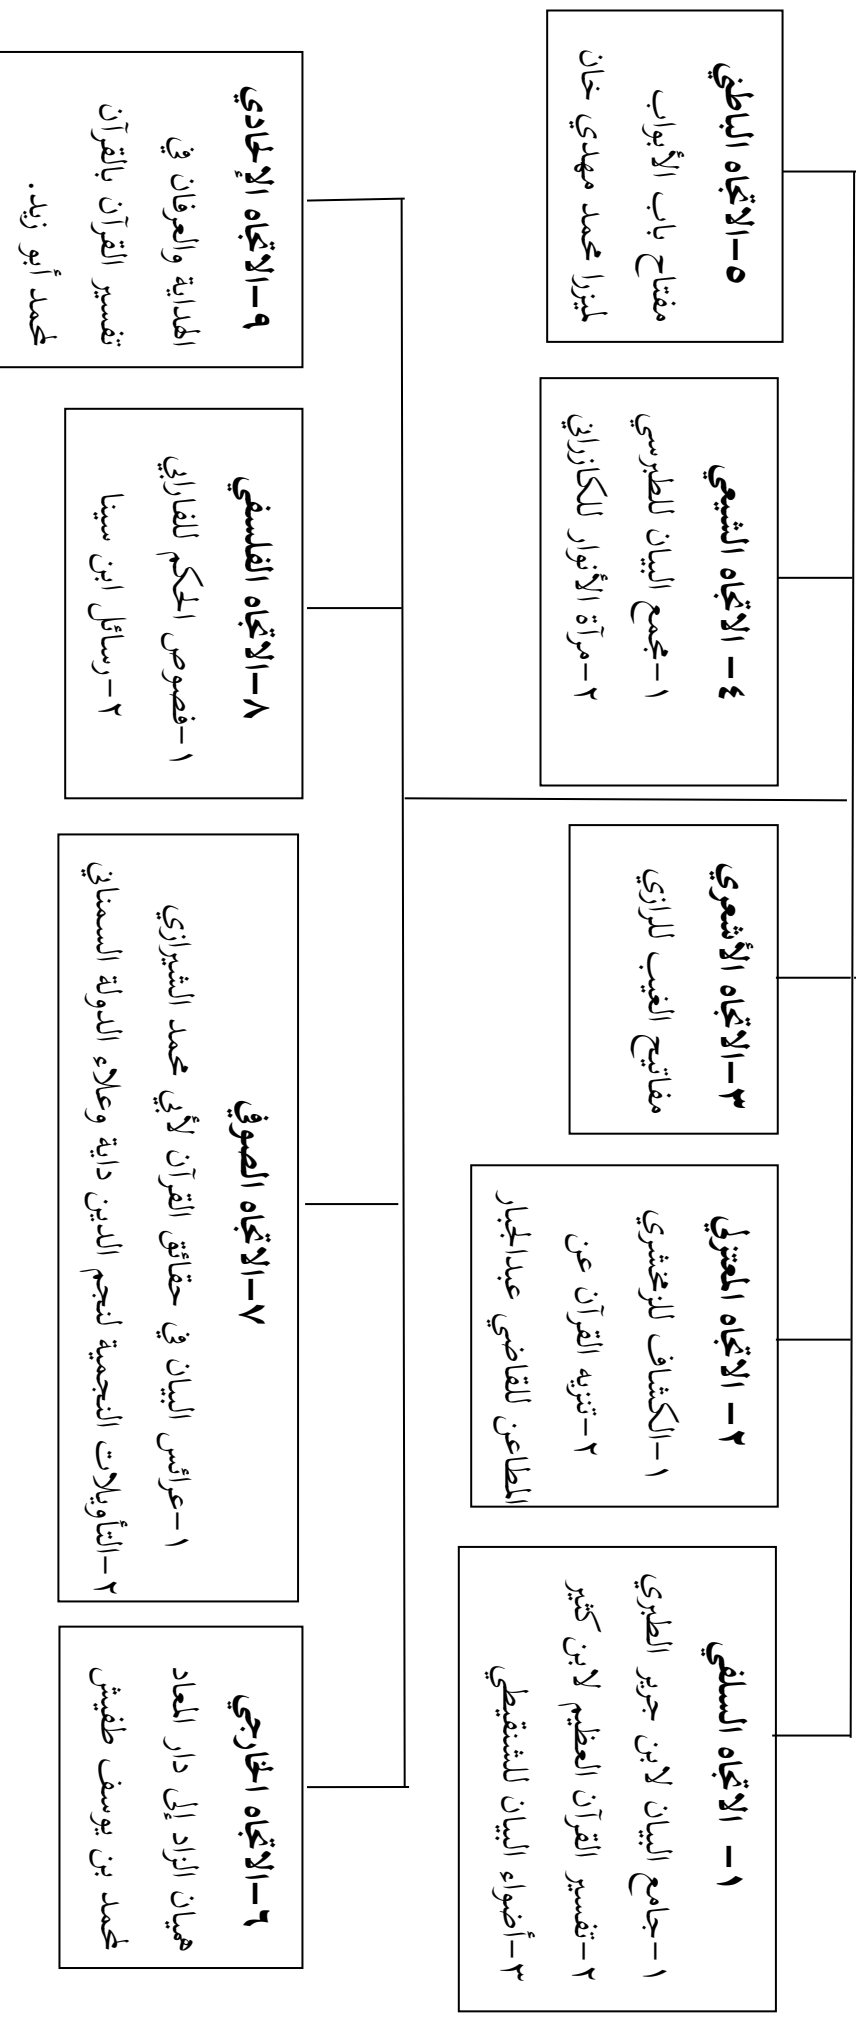 ١- الاتجاه السلفي
١-جامع البيان لابن جرير الطبري
٢-تفسير القرآن العظيم لابن كثير
٣-أضواء البيان للشنقيطي
٢- الاتجاه المعتزلي
١-الكشاف للزمخشري
٢-تنزيه القرآن عن
المطاعن للقاضي عبدالجبار
٣-الاتجاه الأشعري
مفاتيح الغيب للرازي
٤- الاتجاه الشيعي
١-مجمع البيان للطبرسي
٢-مرآة الأنوار للكازراني
٥-الاتجاه الباطني
مفتاح باب الأبواب
لميزرا محمد مهدي خان
٦-الاتجاه الخارجي
هميان الزاد إلى دار المعاد
لمحمد بن يوسف طفيش
٧-الاتجاه الصوفي
١-عرائس البيان في حقائق القرآن لأبي محمد الشيرازي
٢-التأويلات النجمية لنجم الدين داية وعلاء الدولة السمناني
٨-الاتجاه الفلسفي
١-فصوص الحكم للفارابي
٢-رسائل ابن سينا
٩-الاتجاه الإلحادي
الهداية والعرفان في
تفسير القرآن بالقرآن
لمحمد أبو زيد.